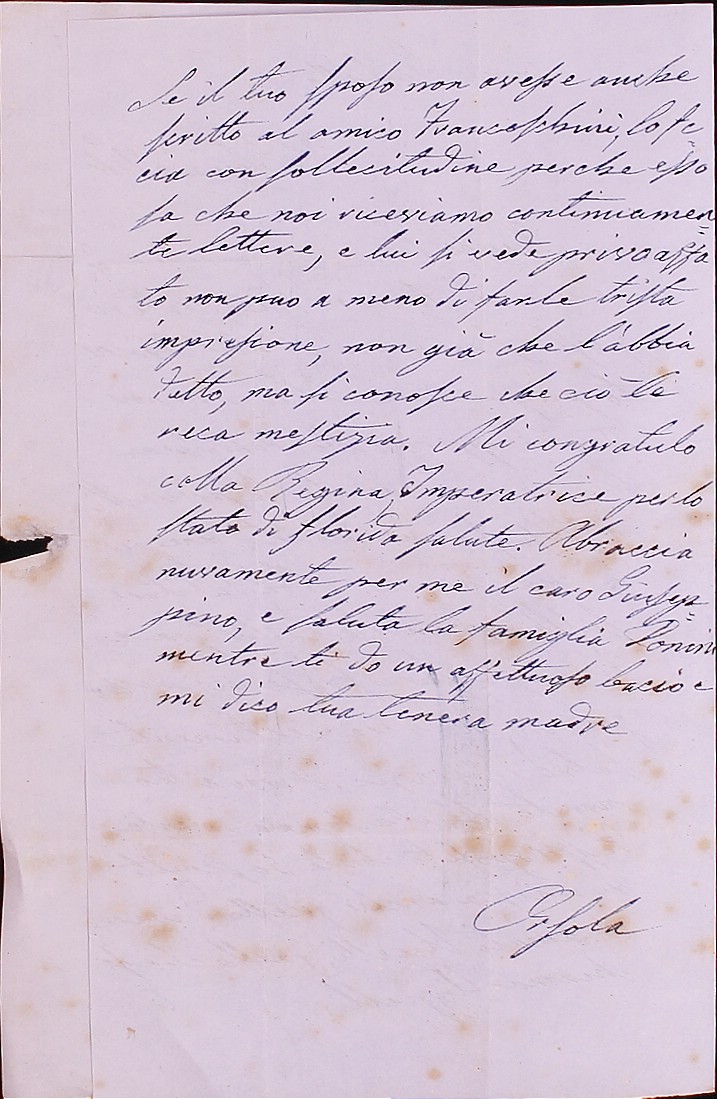 Se il tuo sposo non avesse anche
scritto al amico Franceschini, lo fac=
cia con sollecitudine perche esso
sa che noi riceviamo continuamen=
te lettere, e lui si vede privo affa
to non puo a meno di farle trista
impresione, non già che l'abbia
detto, ma si conosce che ciò le
reca mestizia. Mi congratulo
colla Regina, Imperatrice per lo
stato di florida salute. Abraccia
nuvamente per me il caro Giusep=
pino, e saluta la famiglia Ponini
mentre ti do un affettuoso bacio e
mi dico tua tenera madre
Orsola